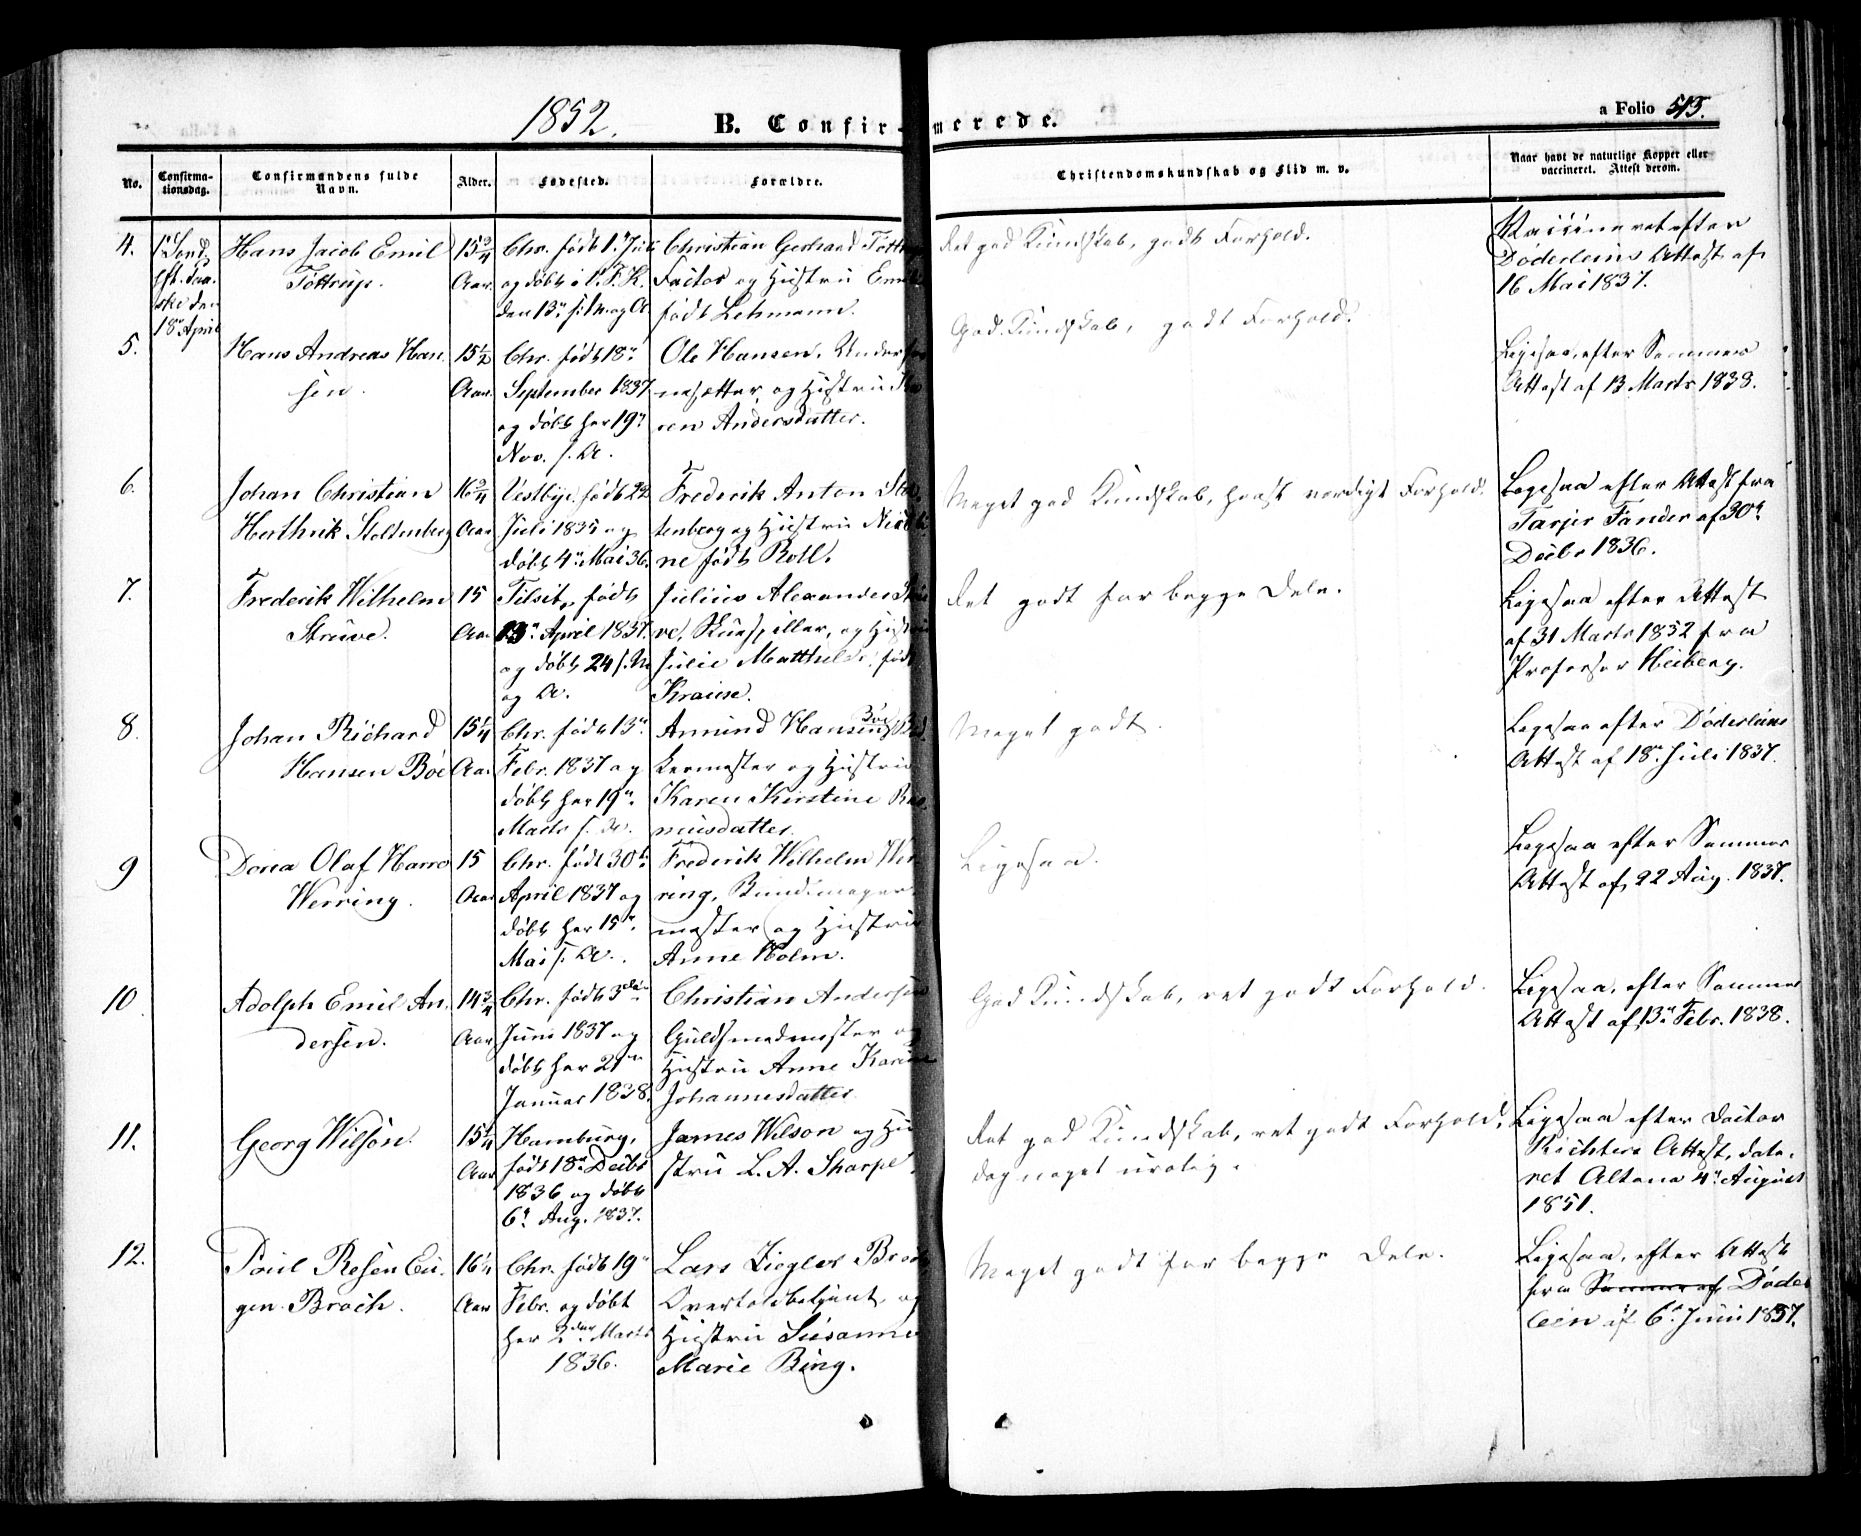 1852.
B. Confirmerede.
a Folio 515.
No.
Confirma-
tionsdag.
Confirmandens fulde
Navn.
Alder.
Fødested.
Forældre.
Christendomskundskab og Flid m. v.
Naar havt de naturlige Kopper eller
vaccineret. Attest derom.
4.
1ste Sønd.
eft. Paa-
ske den
18de April
Hans Jacob Emil
Tøttrup.
15 3/4
Aar.
Chr. født 1ste Juli
og døbt i V. F. K.
den 13de s. M. og A.
Christian Gerhard Tøttrup
Factor og Hustru Emilie
født Lehmann.
Ret god Kundskab, godt Forhold.
Vaccineret efter
Døderleins Attest af
16 Mai 1837.
5.
Hans Andreas Han-
sen.
15 1/2
Aar.
Chr. født 18de
September 1837
og døbt her 19de
Nov. s. A.
Ole Hansen, Under
og Hustru Ka
ren Andersdatter.
God Kundskab, godt Forhold.
Ligesaa, efter Sammes
Attest af 13 Marts 1838.
6.
Johan Christian
Herthnik Stoltenberg
16 3/4
Aar
Vestbye, født 22
Juli 1835 og
døbt 4de Mai 36.
Frederik Anton Stol-
tenberg og Hustru Nicoli
ne født Roll.
Meget god Kundskab, høist værdigt Forhold.
Ligesaa efter Attest fra
Tarjer Fander af 30te
Decbr 1836.
7.
Frederik Wilhelm
Struve.
15
Aar
Tilsit, født
13de April 1837.
og døbt 24 s. M.
og A.
Julius Alexander Stru
ve, Skuespiller, og Hustru
Julie Matthilde, født
Krause.
Ret godt for begge Dele.
Ligesaa efter Attest
af 31 Marts 1852 fra
Professor Heiberg.
8.
Johan Richard
Hansen Böe
15 1/4
Aar
Chr. født 13de
Febr. 1837 og
døbt her 19de
Marts s. A.
Amund Hansen Böe, Bød-
kermester og Hustru
Karen Kirstine Ras
musdatter.
Meget godt.
Ligesaa efter Døderleins
Attest af 18de Juli 1837.
9
Olaf
Werring.
15
Aar
Chr. født 30te
April 1837 og
døbt her 15de
Mai s. A.
Frederik Wilhelm Wer
ring, Bundtmager-
mester og Hustru
Anne Holm.
Ligesaa.
Ligesaa efter Sammes
Attest af 22 Aug. 1837.
10.
Adolph Emil An-
dersen.
14 3/4
Aar
Chr. født 3die
Juni 1837 og
døbt her 21de
Januar 1838.
Christian Andersen
Guldsmedmester og
Hustru Anne Karine
Johannesdatter.
God Kundskab, ret godt Forhold.
Ligesaa, efter Sammes
Attest af 13de Febr. 1838.
11.
Georg Wilson.
15 1/4
Aar
Hamburg,
født 18de Decbr
1836 og døbt
6te Aug. 1837.
James Wilson og Hu
stru L. A. Sharpe.
Ret god Kundskab, ret godt Forhold,
dog noget urolig.
Ligesaa efter Doctor
Richters Attest, date-
ret Altona 4de August
1851.
12.
Poul Resen Eu-
gen Broch.
16 1/4
Aar
Chr. født 19de
Febr. og døbt
her 2den Marts
1836.
Lars Ziegler Broch
Overtoldbetjent, og
Hustru Susanne
Marie Bing.
Meget godt for begge Dele.
Ligesaa, efter Attest
fra Samme af Døder
lein af 6te Juni 1837.